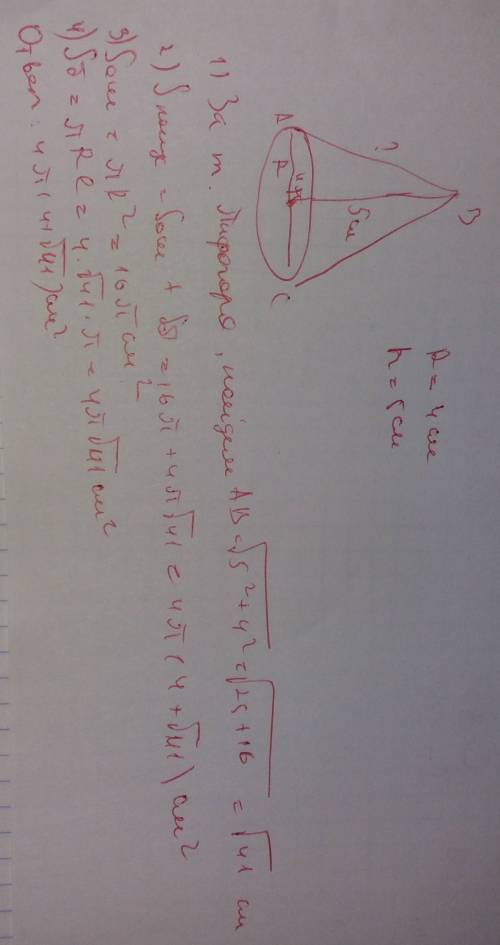 B
?
5 см
A
R
4 см
C
R = 4 см
h = 5 см
1) За т. Пифагора, найдем AB = √5² + 4² = √25 + 16 = √41 см
2) Sполн = Sосн + Sб = 16π + 4π√41 = 4π(4 + √41) см²
3) Sосн = πR² = 16π см²
4) Sб = πRl = 4·√41·π = 4π√41 см²
Ответ: 4π(4+√41) см²